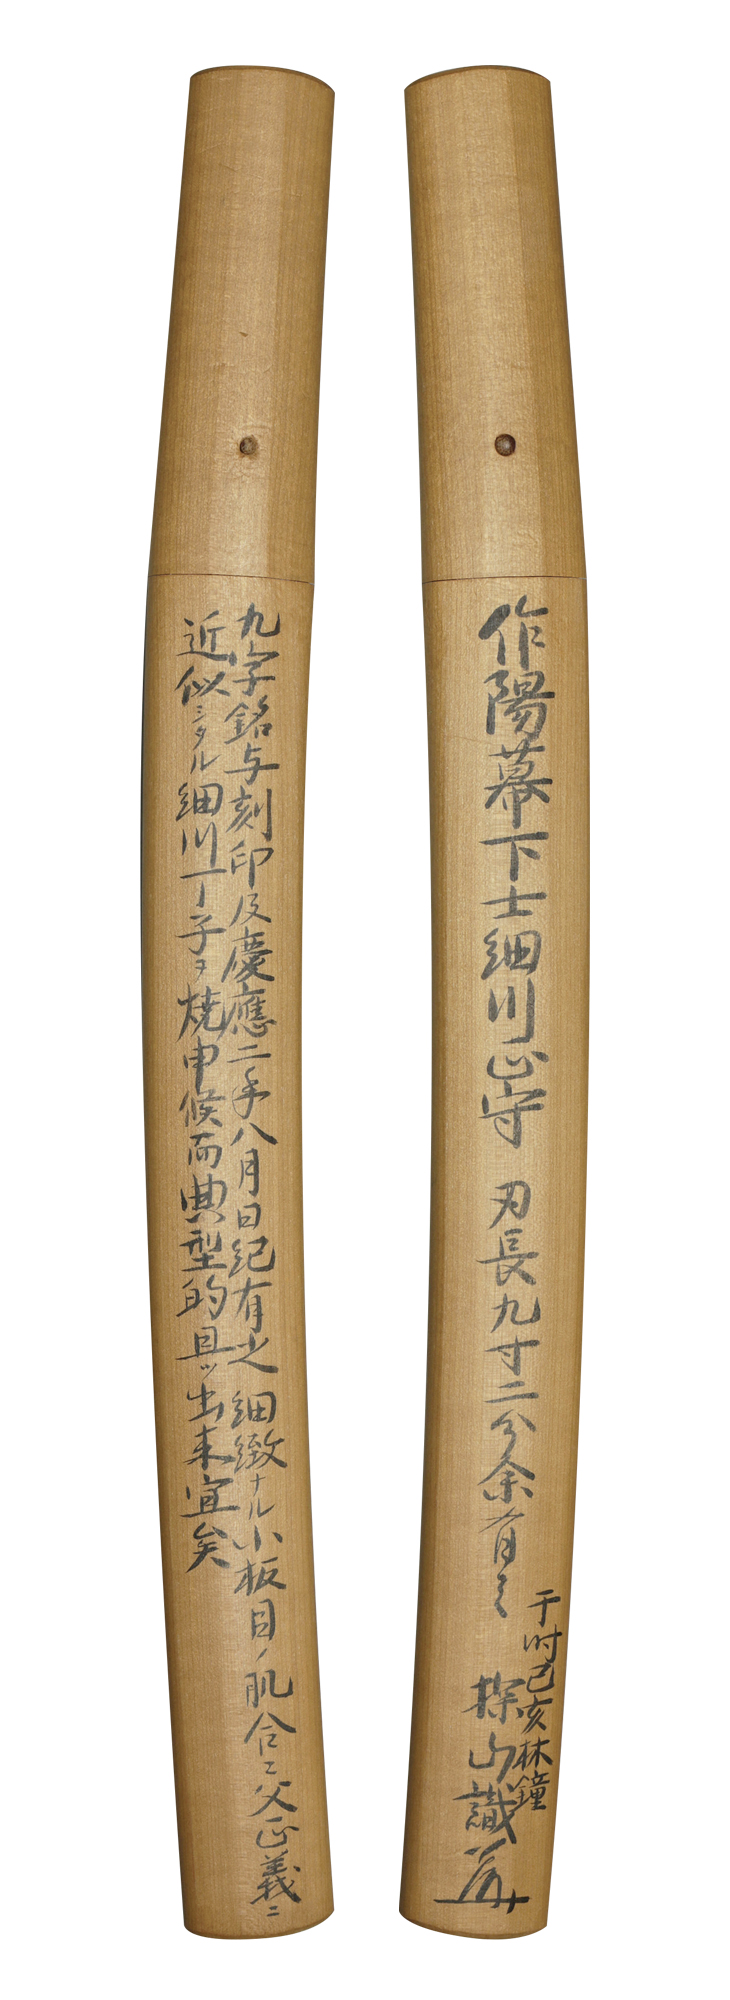 作陽幕下士細川正守 刃長九寸二分余有之
于时己亥林鐘
探山識
九字銘与刻印及慶應二年八月日紀有之 細緻ナル小板目ノ肌合ニ父正義ニ
近似シタル細川丁子ヲ焼申候而典型的且ツ出来宜矣